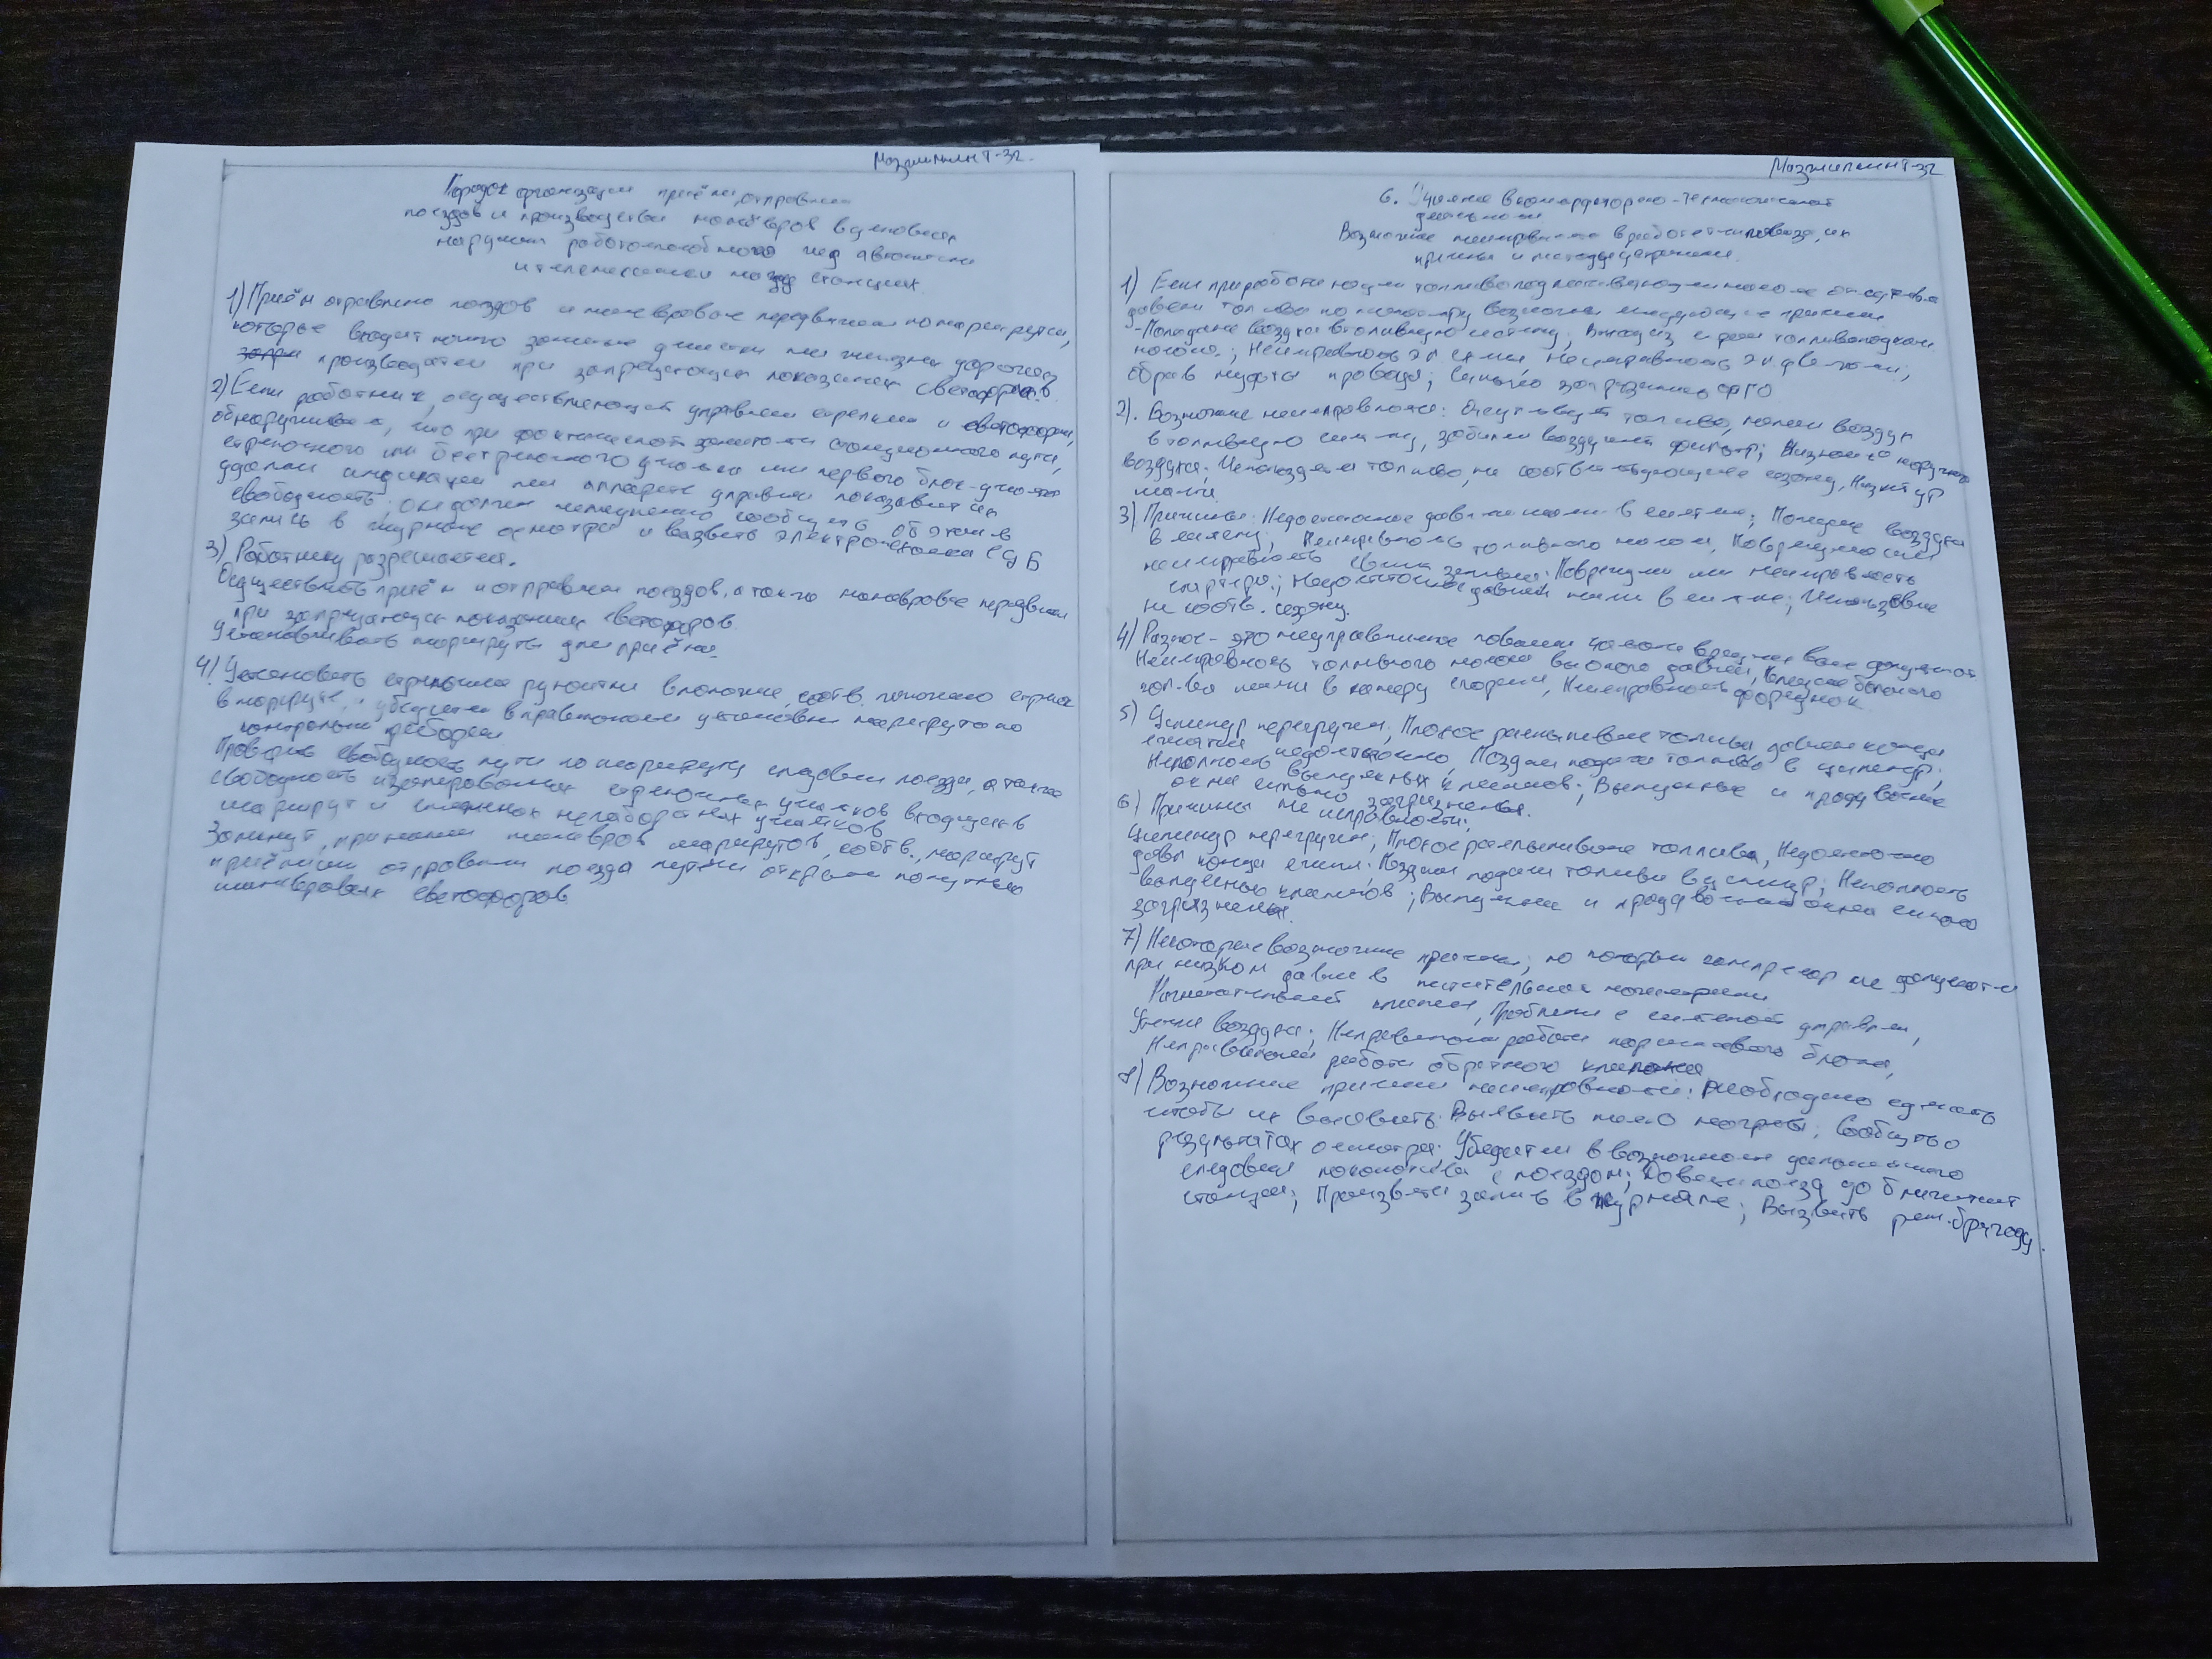 Т-32.
Порядок организации приёма, отправления
поездов и производства манёвров в условиях
нарушения работоспособного
и станциях
1) Приём отправление поездов и маневровые передвижения по маршрутам,
которые входит ложно занятые участки железных дорожных
производятся при запрещающих показаниях светофоров.
2) Если работник, осуществляющий управление стрелками и светофорами,
обнаруживает, что при фактической занятости станционного пути,
стрелочного или бесстрелочного участка или первого блок-участка
удаления индикация на аппарате управления показывает их
свободность, он должен немедленно сообщить об этом в
запись в журнале осмотра и вызвать электромеханика СЦБ
3) Работнику разрешается.
Осуществлять приём и отправление поездов, а также маневровые передвижения
при запрещающих показаниях светофоров
Устанавливать маршруты для приёма.
4) Установить стрелочные рукоятки в положение, соотв. положению стрелок
в маршруте, и убедиться в правильности установки маршрута по
контрольным приборам
Проверить свободность пути по маршруту следования поезда, а также
свободность изолированных стрелочных участков входящих в
маршрут и смежных негабаритных участков
Замкнут, при наличии маневров маршрутов, соотв., маршрут
приёма или отправления поезда путём открытия попутных
маневровых светофоров
Т-32
6.
деятельности
Возможные неисправности в работе тепловоза, их
причины и методы устранения.
1) Если при работающем топливоподкачивающем насосе отсутствует
давление топлива по манометру возможны следующие причины
- Попадание воздуха в топливную систему; Выход из строя топливоподкач
насоса; Неисправность эл схемы; Неисправность эл двигателя;
обрыв муфты привода; Сильно загрязнены ФГО
2). Возможные неисправности: Отсутствует топливо, попал воздух
в топливную систему, забился воздушный фильтр; Низкая наружного
воздуха; Используется топливо, не соответствующее сезону, Низкий ур
масла
3) Причины: Недостаточное давление масла в системе; Попадание воздуха
в систему; Неисправность топливного насоса, Повреждение или
неисправность; Повреждение или неисправность
стартера; Недостаточное давление масла в системе; Использование
не соотв. сезону.
4) Разнос - это неуправляемое повышение частоты вращения вала допустимой
Неисправность топливного насоса высокого давления, Попадание большого
кол-ва масла в камеру сгорания, Неисправность форсунок.
5) Цилиндр перегружен; Плохое распыливание топлива давление конца
сжатия недостаточно, Поздняя подача топлива в цилиндр;
Неплотность выпускных клапанов; Выпускные и продувочные
окна сильно загрязнены.
6) Причины неисправности:
Цилиндр перегружен; Плохое распыливание топлива, Недостаточно
давл конца сжатия. Поздняя подача топлива в цилиндр; Неплотность
выпускных клапанов; Выпускные и продувочные окна сильно
загрязнены.
7) Некоторые возможные причины, по которым компрессор не запускается
при низком давлении в питательной магистрали
клапан, Проблемы с системой управления,
Утечки воздуха; Неправильная работа поршневого блока,
Неправильная работа обратного клапана
8) Возможные причины неисправности: Необходимо сделать
чтобы их выявить. Выявить место нагрева; Сообщить о
результатах осмотра; Убедиться в возможности дальнейшего
следования локомотива с поездом; Довести поезд до ближайшей
станции; Произвести запись в журнале; Вызвать рем. бригаду.